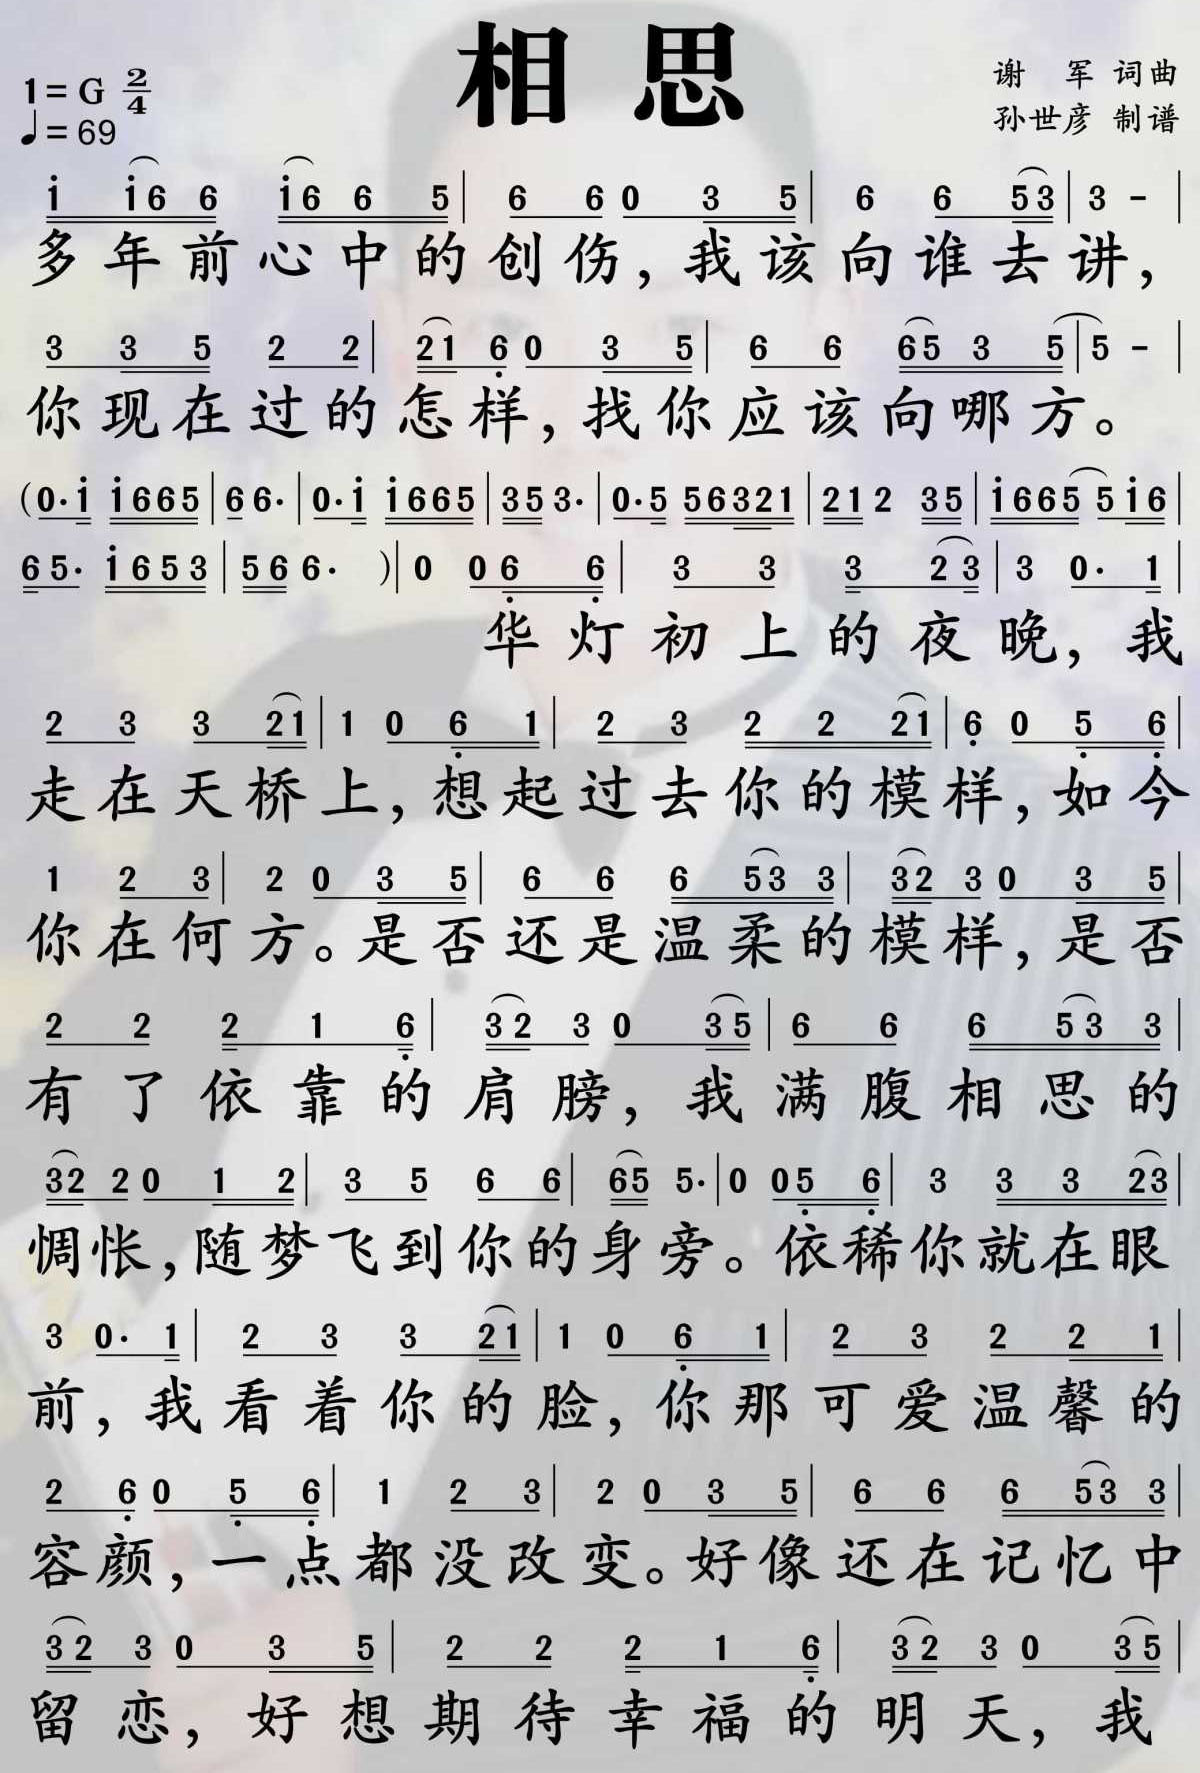 相思
1=G 2/4
♩=69
谢 军 词曲
孙世彦 制谱
i i6 6 i6 6 5 | 6 6 0 3 5 | 6 6 53 | 3 - |
多年前心中的创伤,我该向谁去讲,
3 3 5 2 2 | 21 6 0 3 5 | 6 6 65 3 5 | 5 - |
你现在过的怎样,找你应该向哪方。
(0· i i665 | 6 6· | 0· i i665 | 35 3· | 0· 5 56321 | 212 35 | i665 5i6 |
65· i653 | 566· ) | 0 0 6 6 | 3 3 3 23 | 3 0· 1 |
华灯初上的夜晚,我
2 3 3 21 | 1 0 6 1 | 2 3 2 2 21 | 6 0 5 6 |
走在天桥上,想起过去你的模样,如今
1 2 3 | 2 0 3 5 | 6 6 6 53 3 | 32 3 0 3 5 |
你在何方。是否还是温柔的模样,是否
2 2 2 1 6 | 32 3 0 35 | 6 6 6 53 3 |
有了依靠的肩膀,我满腹相思的
32 2 0 1 2 | 3 5 6 6 | 65 5· | 0 05 6 | 3 3 3 23 |
惆怅,随梦飞到你的身旁。依稀你就在眼
3 0· 1 | 2 3 3 21 | 1 0 6 1 | 2 3 2 2 1 |
前,我看着你的脸,你那可爱温馨的
2 6 0 5 6 | 1 2 3 | 2 0 3 5 | 6 6 6 53 3 |
容颜,一点都没改变。好像还在记忆中
32 3 0 3 5 | 2 2 2 1 6 | 32 3 0 35 |
留恋,好想期待幸福的明天,我